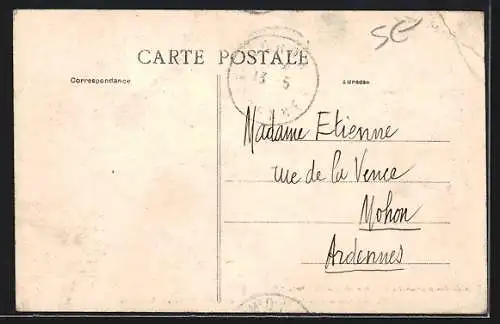 SE
CARTE POSTALE
Correspondance
Adresse
13 5
Madame Etienne
rue de la Vence
Mohon
Ardennes